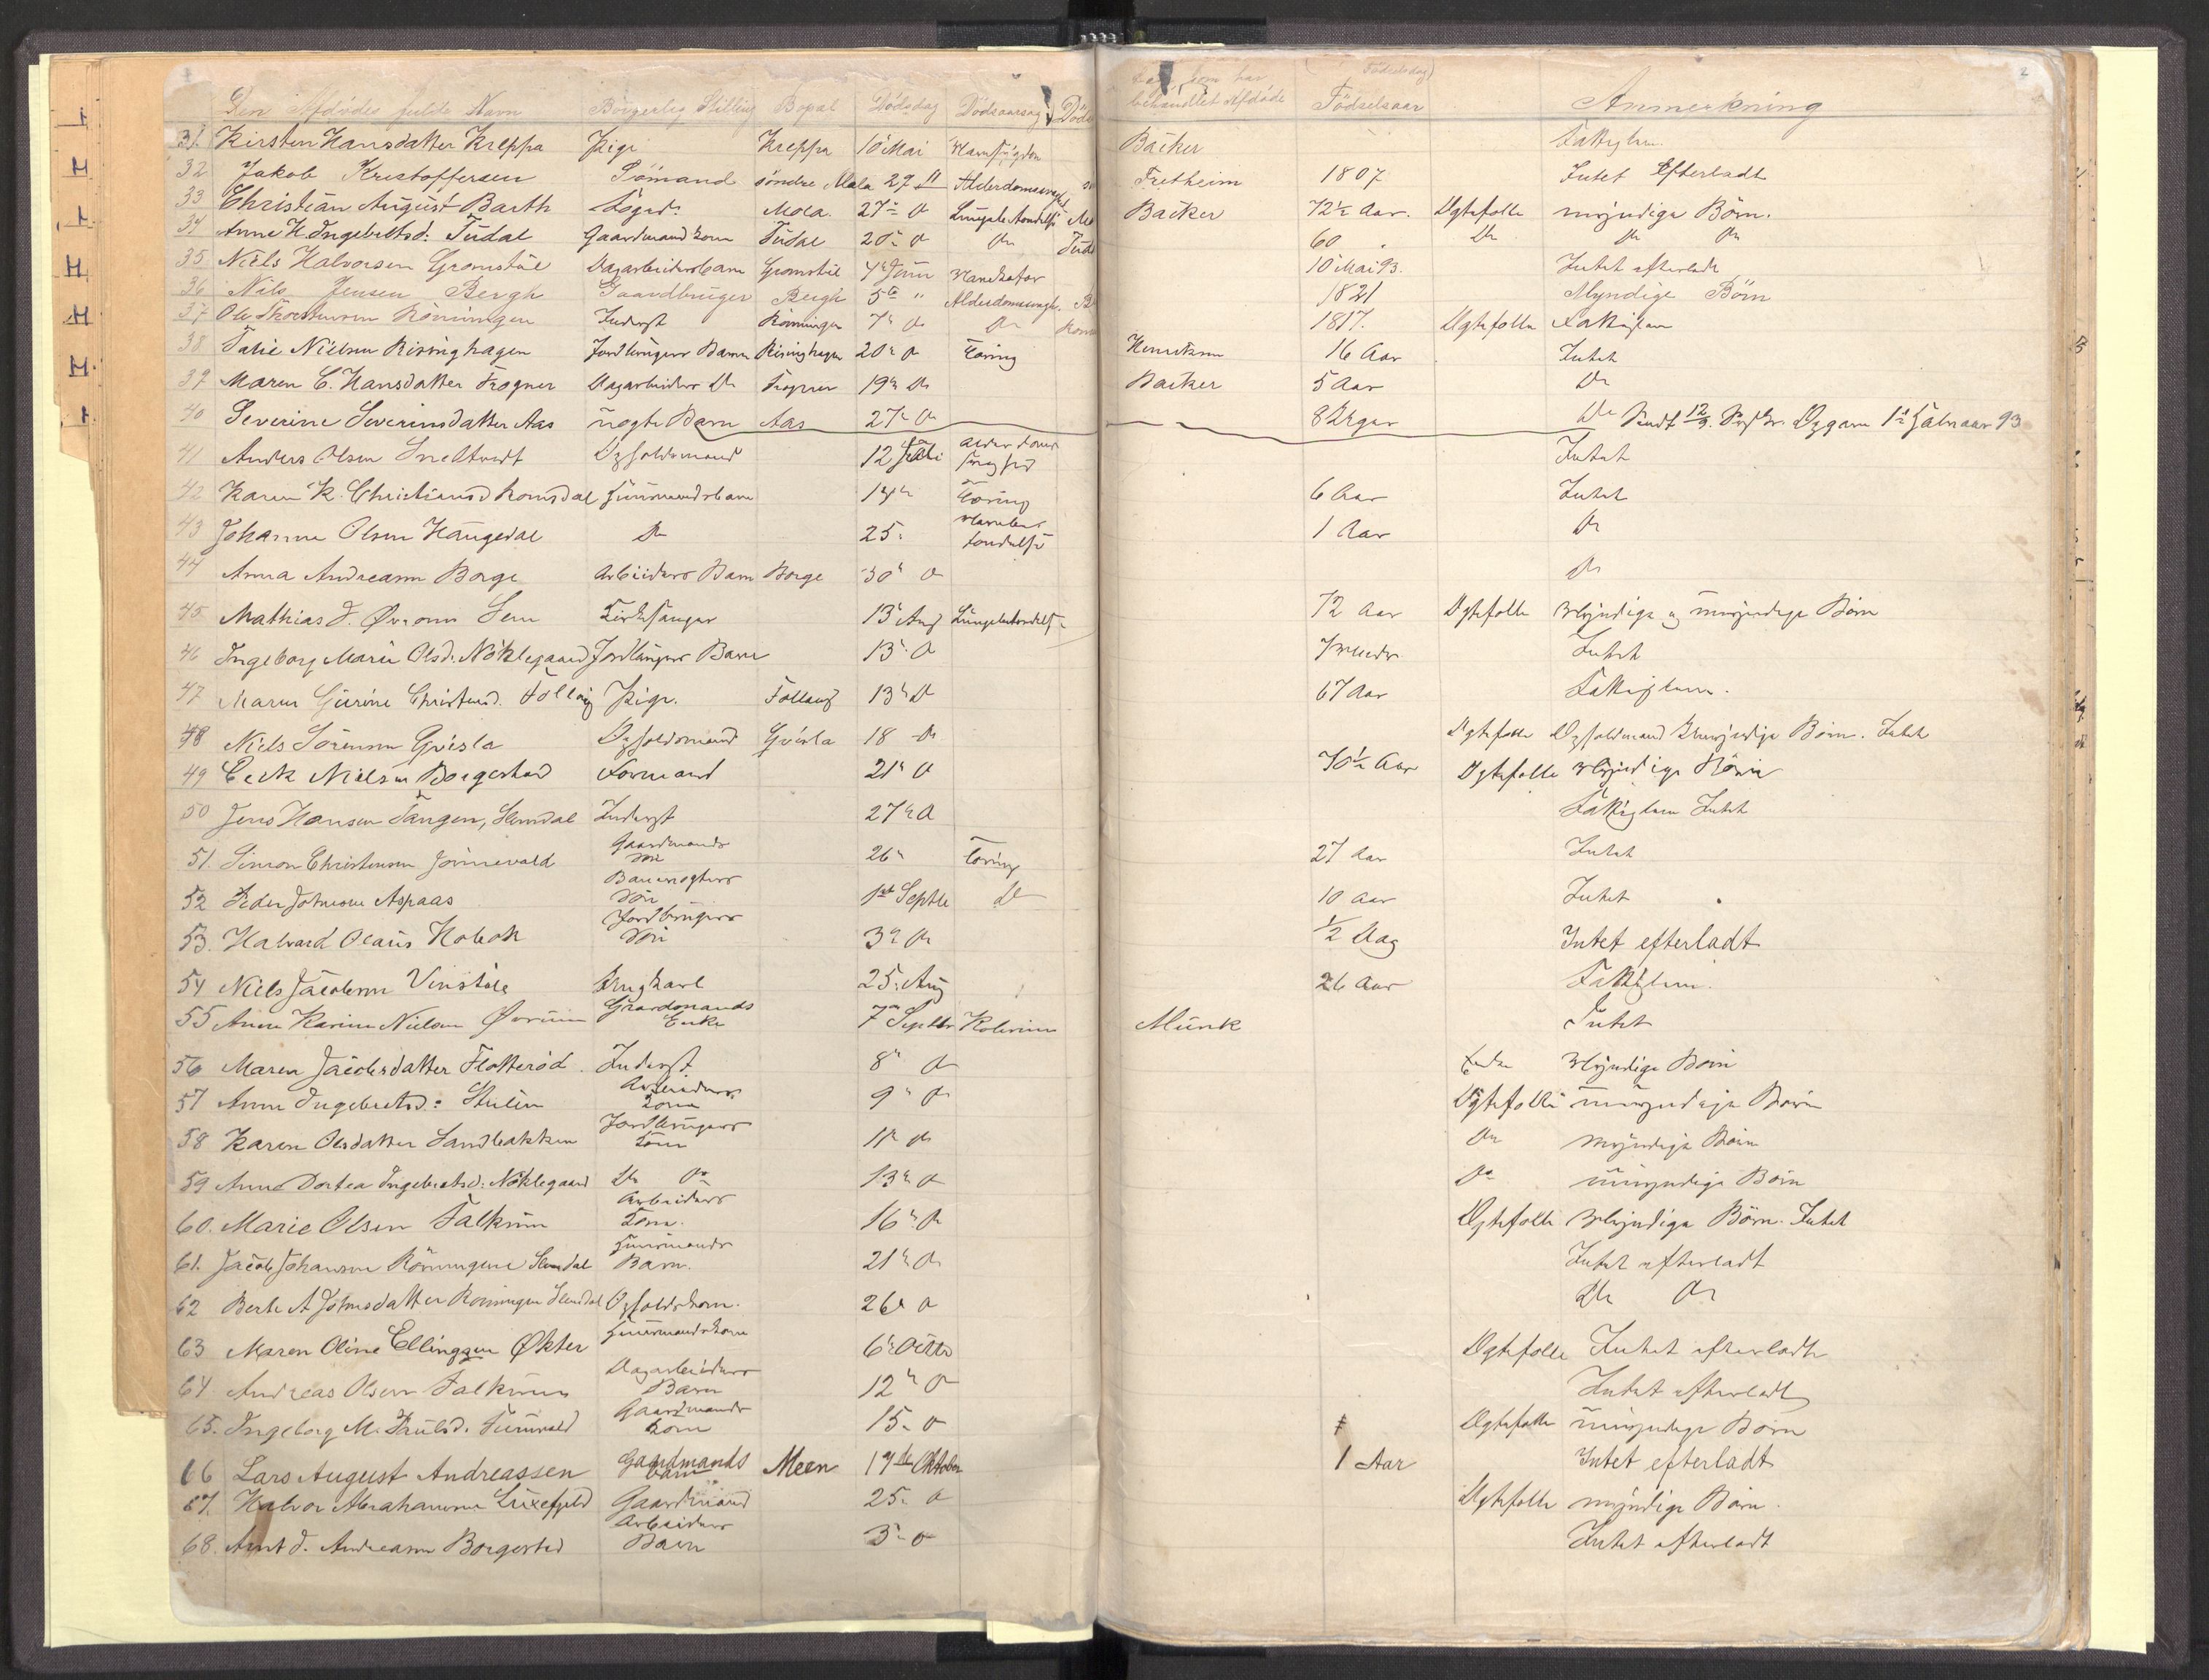 Den Afdödes fulde Navn Borgerlig Stilling Bopæl Dödsdag Dödsaarsag som har behandlet Afdöde Födselsaar (Födselsdag) Anmerkning 2
31. Kirsten Hansdatter Kreppa Pige Kreppa 10 Mai Bäcker Fattiglem.
32 Jakob Kristoffersen Sömand söndre Mæla 27 " Alderdomssvagh. Fretheim 1807 Intet Efterladt
33 Christian August Barth Mæla 27de Do Lungebetændelse Bäcker 72½ Aar. Ægtefolle myndige Börn.
34 Anne H. Ingebretsd: Tüdal Gaardmandskone Tüdal 20de Do Do 60 Do Do Do
35 Niels Halvorsen Gromstül Dagarbeidersbarn Gromstül 4de Juni 10 Mai 93. Intet efterladt
36 Nils Jensen Bergh Gaardbrüger Bergh 5te " Alderdomssvagh. 1821 Myndige Börn
37 Ole Thorstensen Rönningen Inderst Rönningen 7de Do Do 1817. Ægtefolle Fattiglem
38 Talie Nielsen Risinghagen Jordbrügers Barn Risinghagen 20de Do Tæring Henriksen 16 Aar Intet
39 Maren C. Hansdatter Frogner Dagarbeiders Do Frogner 19de Do Bäcker 5 Aar Do
40 Severine Severinsdatter Aas uægte Barn Aas Aas 27de Do 8 Uger Do Sendt 12/9. 1ste Februar 93
41 Anders Olsen Sneltvedt Oyfoldsmand 12 Juli Alderdoms svaghed Intet
42 Karen K. Christiansd Romsdal Huusmandsbarn 14de Tæring 6 Aar Intet
43 Johanne Olsen Haugedal Do 25de 1 Aar Do
44 Anna Andreasen Borge Arbeiders Barn Borge 30de Do Do
45 Mathias J. Øvrom Sem Kirkesanger 13de Aug Lungebetændelse 72 Aar Ægtefolle Myndige og umyndige Börn
46 Ingeborg Marie Olsd: Nöklegaard Jordbrügers Barn 13de Do 7 Mdr. Intet
47 Maren Gurine Christensd. Follaug Pige. Follaug 13de Do 67 Aar Fattiglem.
48 Niels Sörensen Gvisla Oyfoldsmand Gvisla 18 Do Ægtefolle Oyfoldsmand Umyndige Börn. Intet
49 Erik Nielsen Borgestad Formand 21de Do 70½ Aar Ægtefolle Myndige Börn
50 Jens Hansen Tangen, Slemdal Inderst 27de Do Fattiglem Intet
51. Simon Christensen Jönnevald Gaardmands Sön 26de Tæring 27 Aar Intet
52 Peder Johnsen Aspaas Banevogters Sön 1ste Septbr Do 10 Aar Intet
53. Halvard Olaus Hobæk Jordbrügers Sön 3de Do ½ Dag Intet efterladt
54 Niels Jacobsen Vinstöle Brugskarl 25de Aug 26 Aar Fattiglem.
55 Anne Karine Nielsen Øvrum Gaardmands Enke 7de Septbr Kolerine Münk Intet
56 Maren Jacobsdatter Flotteröd Inderst 8de Do Enke Myndige Börn
57 Anne Ingebretsd: Stulen Arbeiders Kone 9de Do Ægtefolle umyndige Börn
58 Karen Olsdatter Sandbakken Jordbrügers Kone 11de Do Do myndige Börn
59 Anne Dortea Ingebretsd: Nöklegaard Do Do 13de Do Do umyndige Börn
60. Marie Olsen Falkum Arbeiders Kone. 16de Do Ægtefolle Myndige Börn. Intet
61. Jacob Johansen Rönningene Slemdal Huusmands Barn. 21de Do Intet efterladt
62 Berte A Johnsdatter Rönningen Slemdal Oyfoldskone. 26de Do Do Do
63 Maren Oline Ellingsen Økter Huusmandskone 6te Octbr Ægtefolle Intet efterladt
64 Andreas Olsen Falkum Dagarbeiders Barn 12de Do Intet efterladt
65. Ingeborg M. Paulsd. Gaardmands Kone 15de Do Ægtefolle umyndige Börn
66 Lars August Andreassen Gaardmands barn Meen 17de Oktober 1 Aar Intet efterladt
67. Halvor Abrahamsen Luxefjeld Gaardmand 25de Do Ægtefolle myndige Börn.
68. Arnt J. Andreasen Borgestad Arbeiders Barn 3de Do Intet efterladt